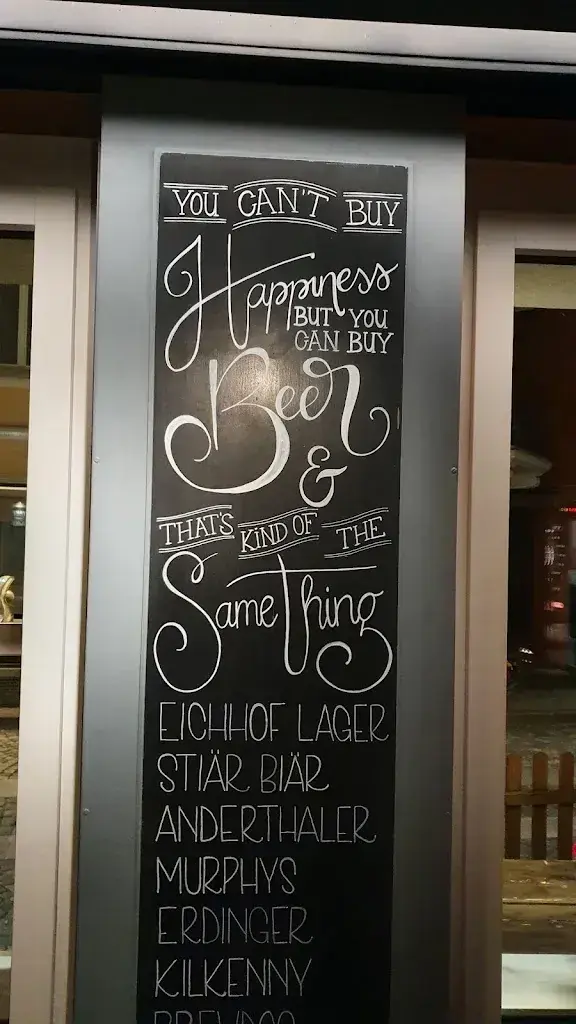 YOU CAN'T BUY
Happiness
BUT YOU
CAN BUY
Beer
&
THAT'S KiND OF THE
Same Thing
EICHHOF LAGER
STIÄR BIÄR
ANDERTHALER
MURPHYS
ERDINGER
KILKENNY